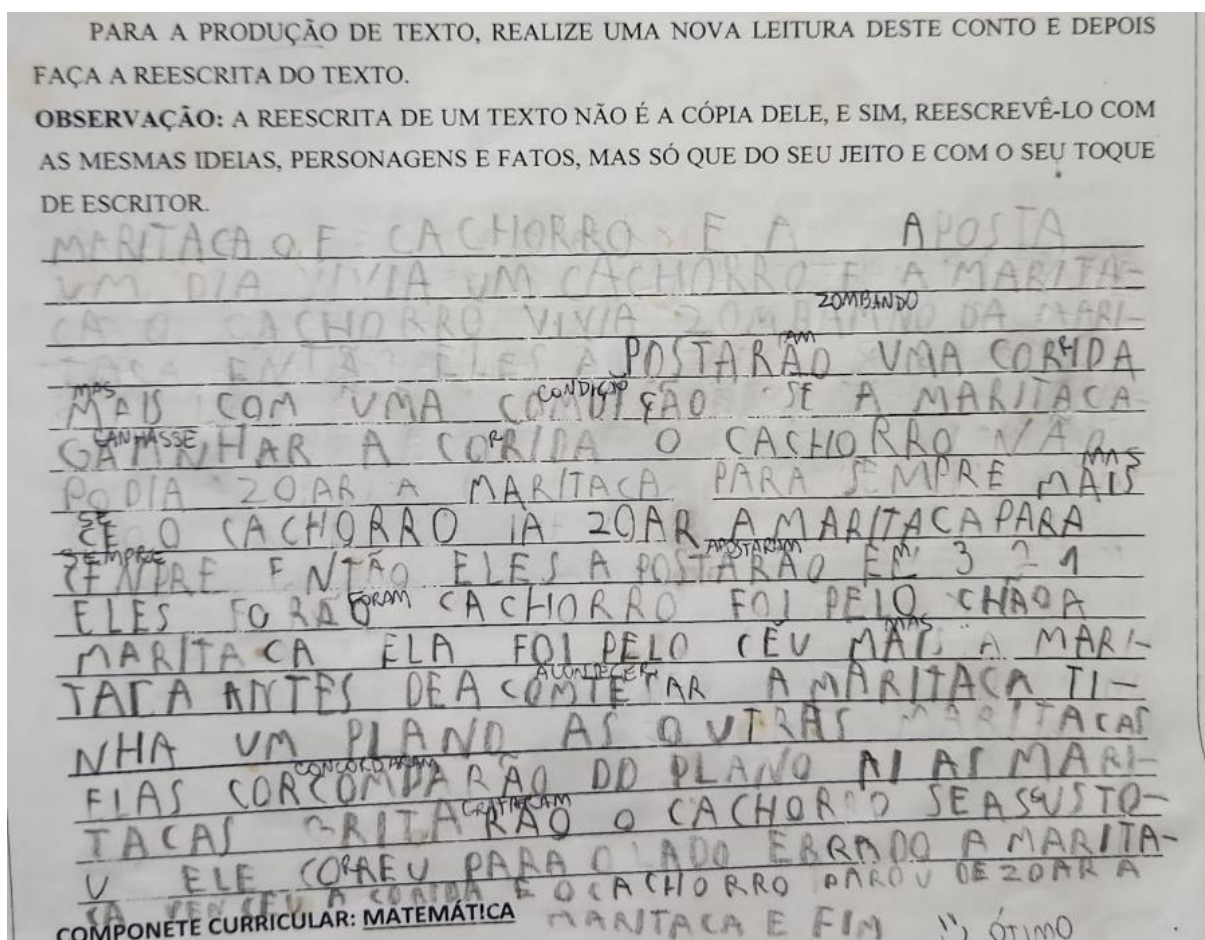 PARA A PRODUÇÃO DE TEXTO, REALIZE UMA NOVA LEITURA DESTE CONTO E DEPOIS
FAÇA A REESCRITA DO TEXTO.
OBSERVAÇÃO: A REESCRITA DE UM TEXTO NÃO É A CÓPIA DELE, E SIM, REESCREVÊ-LO COM
AS MESMAS IDEIAS, PERSONAGENS E FATOS, MAS SÓ QUE DO SEU JEITO E COM O SEU TOQUE
DE ESCRITOR.
MARITACA O E CACHORRO E A APOSTA
UM DIA VIVIA UM CACHORRO E A MARITA-
ZOMBANDO
CA O CACHORRO VIVIA DA MARI-
AM
TACA ENTÃO ELES A POSTARÃO UMA CORRIDA
MAS CONDIÇÃO
MAIS COM UMA COMDIÇÃO SE A MARITACA
GANHASSE R
GAMNHAR A CORIDA O CACHORRO NÃO
MAS
PODIA ZOAR A MARITACA PARA SEMPRE MAIS
SE
CE O CACHORRO IA ZOAR A MARITACA PARA
SEMPRE APOSTARAM M
CENPRE ENTÃO ELES A POSTARÃO EE 3 2 1
FORAM
ELES FORÃO CACHORRO FOI PELO CHÃO A
MAS
MARITACA ELA FOI PELO CÉU MAIS A MARI-
ACONTECER
TACA ANTES DE A COMTEÇAR A MARITACA TI-
NHA UM PLANO AS OUTRAS MARITACAS
CONCORDARAM
ELAS CORCOMDARÃO DO PLANO AI AS MARI-
GRITARAM
TACAS GRITARÃO O CACHORRO SE ASSUSTO-
U ELE CORREU PARA O LADO ERRADO A MARITA-
CA VENCEU A CORIDA E O CACHORRO PAROU DE ZOAR A
MARITACA E FIM
ÓTIMO
COMPONETE CURRICULAR: MATEMÁTICA